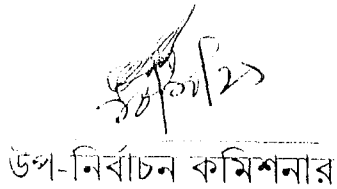 উপ-নির্বাচন কমিশনার